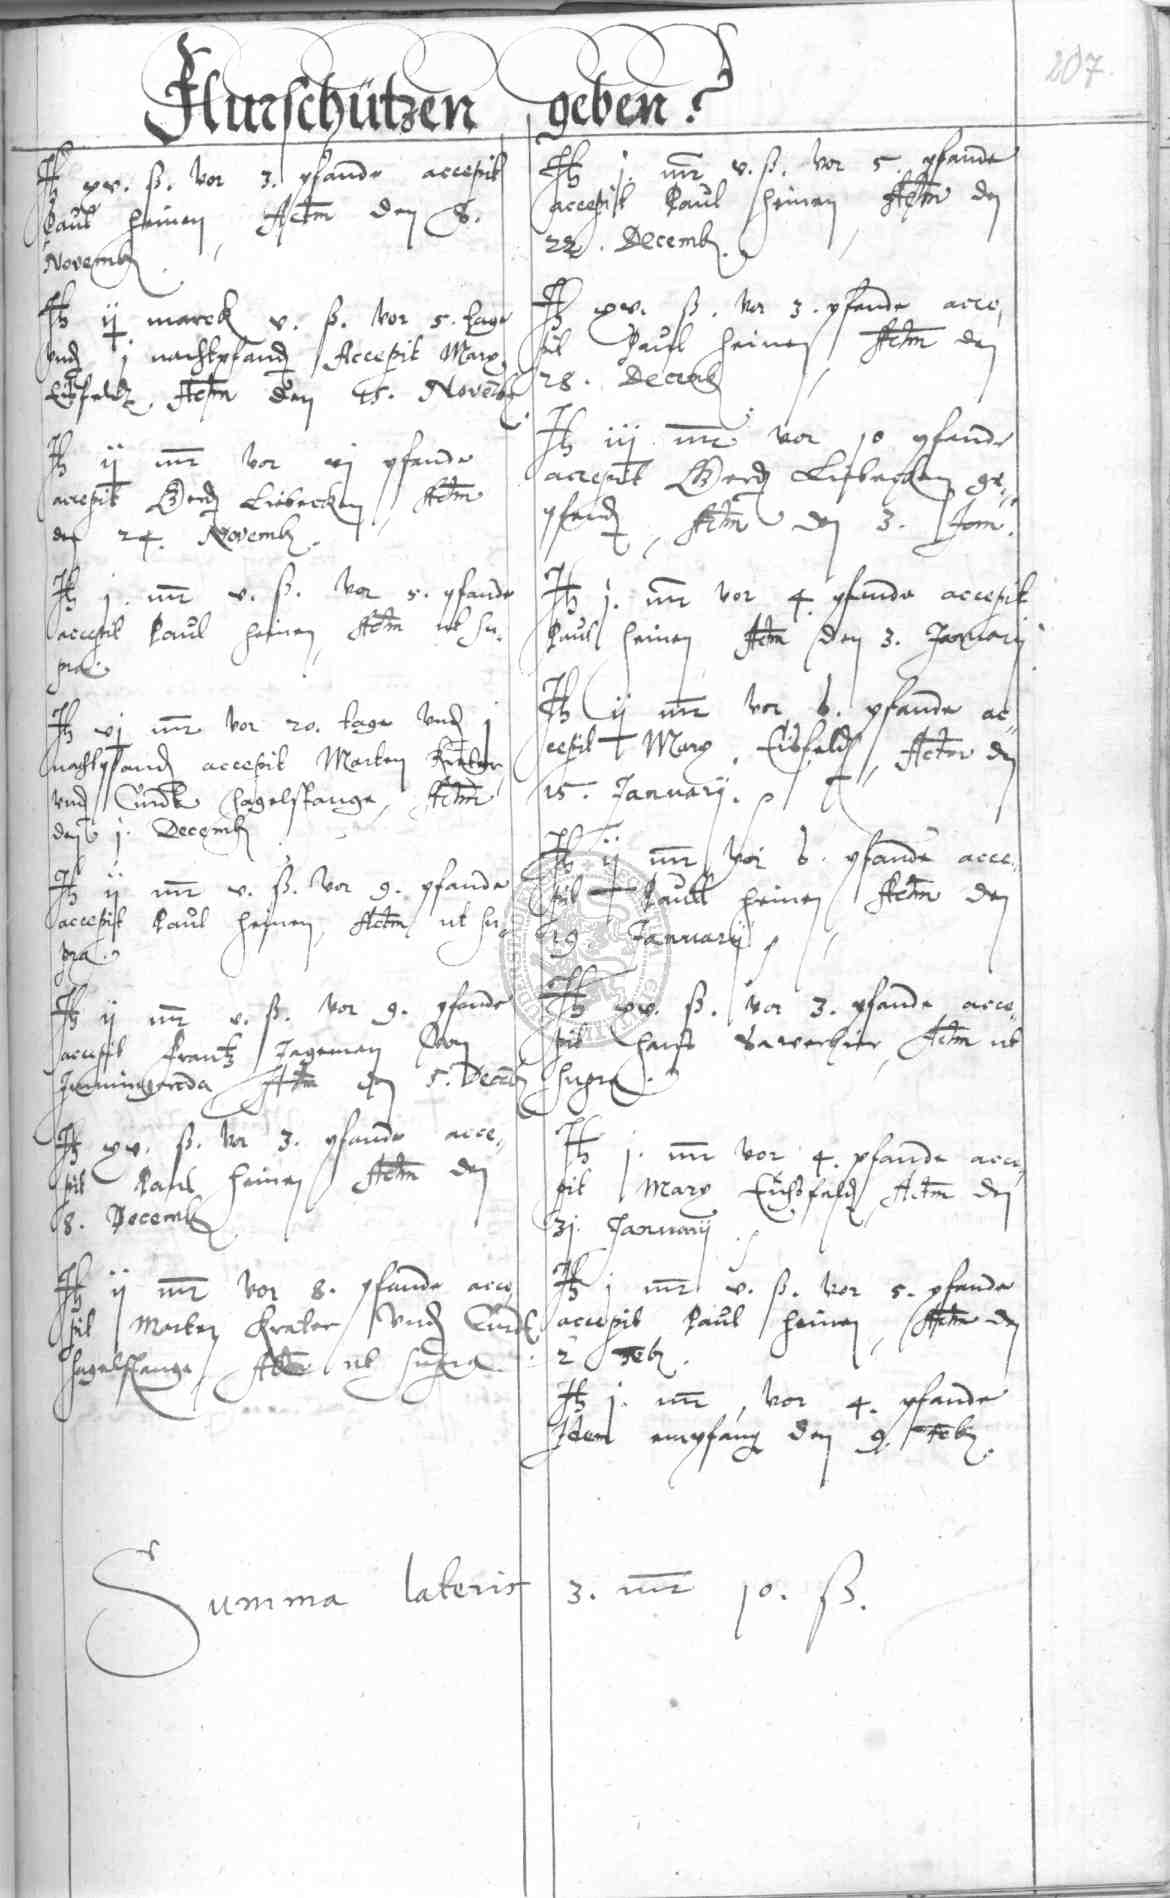 207.
Flurschützen geben.
It xv. ß. vor 3. pfande accepit
Paul Heinen, Actm den 8.
Novemb.
It ij marck v. ß. vor 5. tage
vnd j nachtpfand Accepit Marx
Actm den 15. Novemb
It ij mr vor vj pfande
accepit Gerd Liebecken, Actm
den 24. Novemb.
It j. mr v. ß. vor 5. pfande
accepit Paul Heinen, Actm ut su-
pra.
It vj mr vor 20. tage vnd j
nachtpfand accepit Marten Krater
vnd Curdt Hagelstange, Actm
den j. Decemb
It ij mr v. ß. vor 9. pfande
accepit Paul Heinen, Actm ut su-
pra.
It ij mr v. ß. vor 9. pfande
accepit Frantz Jageman von
Actm den 5. Decemb
It xv. ß. vor 3. pfande acce-
pit Paul Heinen Actm den
8. Decemb
It ij mr vor 8. pfande acce
pit Marten Krater vnd Curdt
Hagelstange, Actm ut supra.
It j. mr v. ß. vor 5. pfande
accepit Paul Heinen, Actm den
22. Decemb.
It xv. ß. vor 3. pfande acce,
pit Paul Heinen, Actm den
28. Decemb
It iij mr vor 10 pfande
accepit Gerd Liebecken ge-
pfend, Actm den 3. Jan.
It j. mr vor 4. pfande accepit
Paul Heinen Actm den 3. Januarij
It ij mr vor 8. pfande ac-
cepit Marx Actm den
15. Januarij.
It ij mr vor 8. pfande acce-
pit Paull Heinen Actm den
19 Januarij
It xv. ß. vor 3. pfande acce-
pit Hanß Actm ut
supra.
It j. mr vor 4. pfande acce-
pit Marx Actm den
31. Januarij
It j mr v. ß. vor 5. pfande
accepit Paul Heinen, Actm den
2 Feb.
It j. mr, vor 4. pfande
Idem empfang den 9. Feb.
Summa lateris 3. mr 10. ß.